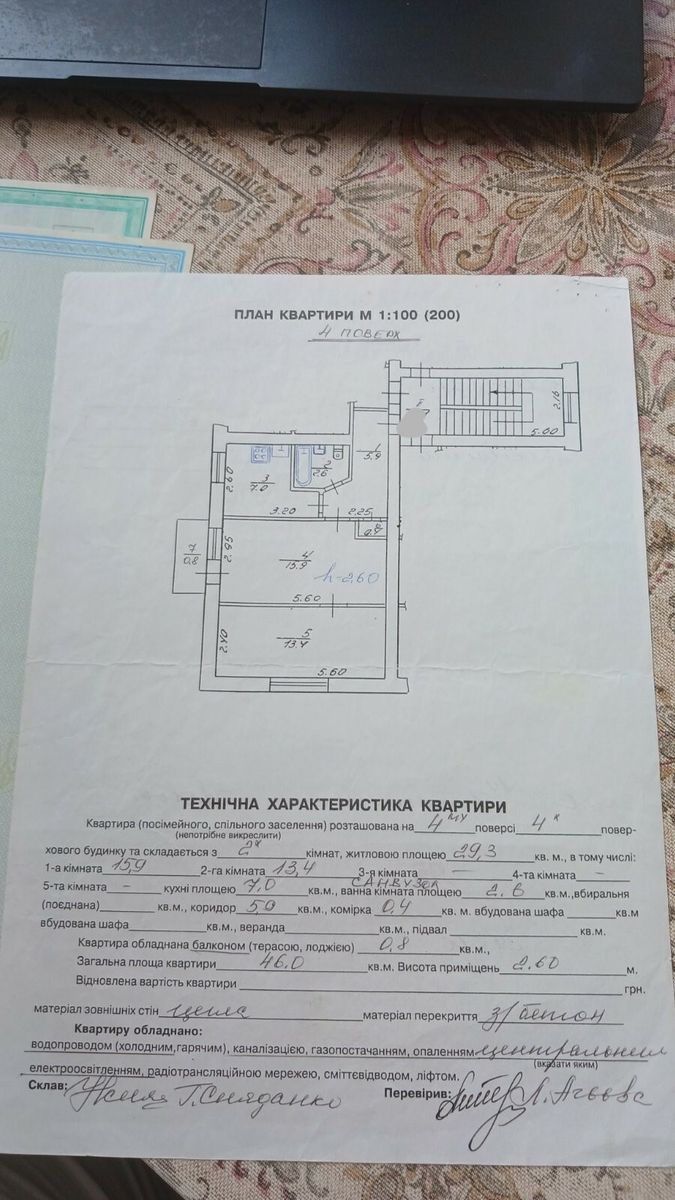 ПЛАН КВАРТИРИ М 1:100 (200)
4 поверх
2.16
5.00
1
5.9
2
2.6
3
7.0
2.60
3.20
2.25
6
0.4
7
0.8
2.95
4
15.9
h-2.60
5.60
2.40
5
13.4
5.60
ТЕХНІЧНА ХАРАКТЕРИСТИКА КВАРТИРИ
Квартира (посімейного, спільного заселення) розташована на 4му поверсі 4х повер-
(непотрібне викреслити)
хового будинку та складається з 2х кімнат, житловою площею 29,3 кв. м., в тому числі:
1-а кімната 15,9 2-га кімната 13,4 3-я кімната – 4-та кімната –
5-та кімната – кухні площею 7,0 кв.м., ванна кімната площею САНВУЗОЛ 2.6 кв.м.,вбиральня
(поєднана) кв.м., коридор 5,9 кв.м., комірка 0,4 кв. м. вбудована шафа кв.м
вбудована шафа кв.м., веранда кв.м., підвал кв.м.
Квартира обладнана балконом (терасою, лоджією) 0,8 кв.м.,
Загальна площа квартири 46.0 кв.м. Висота приміщень 2.60 м.
Відновлена вартість квартири грн.
матеріал зовнішніх стін цегла матеріал перекриття з/бетон
Квартиру обладнано:
водопроводом (холодним,гарячим), каналізацією, газопостачанням, опаленням центральним
(вказати яким)
електроосвітленням, радіотрансляційною мережею, сміттєвідводом, ліфтом.
Склав: Г. Перевірив: Л.